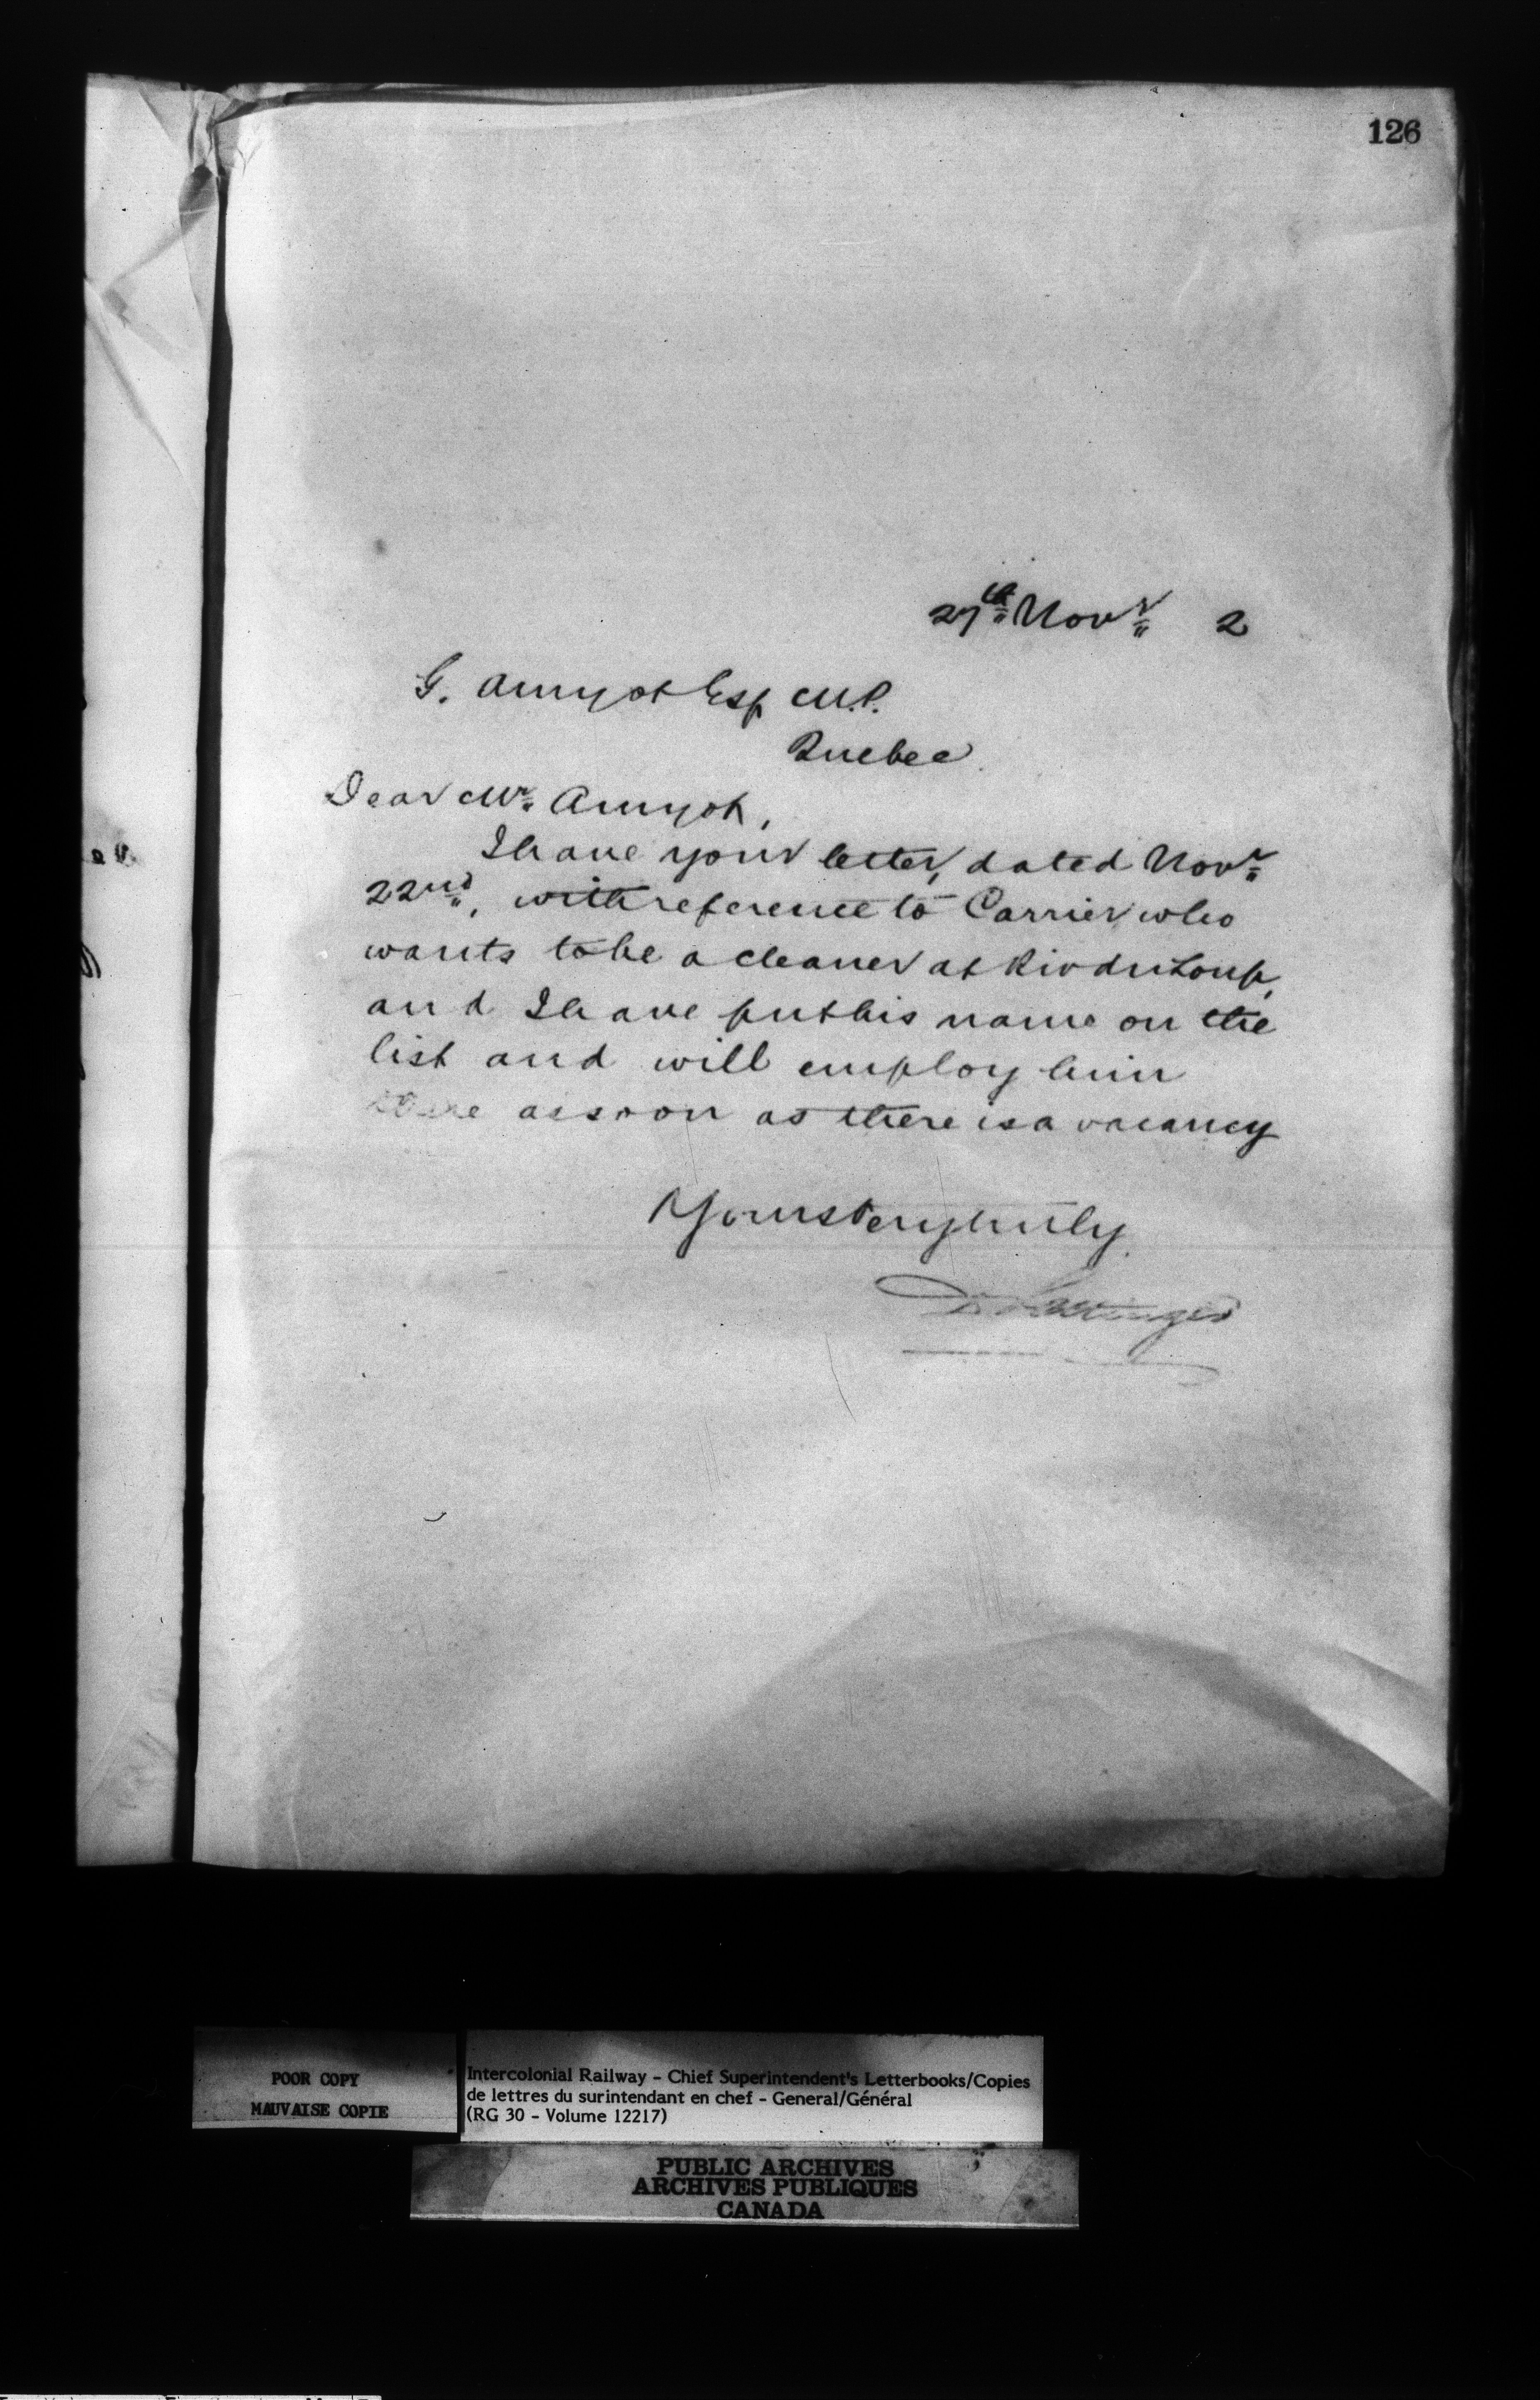 126
27th Novr 2
G. Amyot Esq M.P.
Quebec.
Dear Mr. Amyot,
I have your letter, dated Novr
22nd, with reference to Carrier who
wants to be a cleaner at Riv du Loup,
and I have put his name on the
list and will employ him
there as soon as there is a vacancy
Yours very truly.
D Pottinger
POOR COPY
MAUVAISE COPIE
Intercolonial Railway - Chief Superintendent's Letterbooks/Copies
de lettres du surintendant en chef - General/Général
(RG 30 - Volume 12217)
PUBLIC ARCHIVES
ARCHIVES PUBLIQUES
CANADA